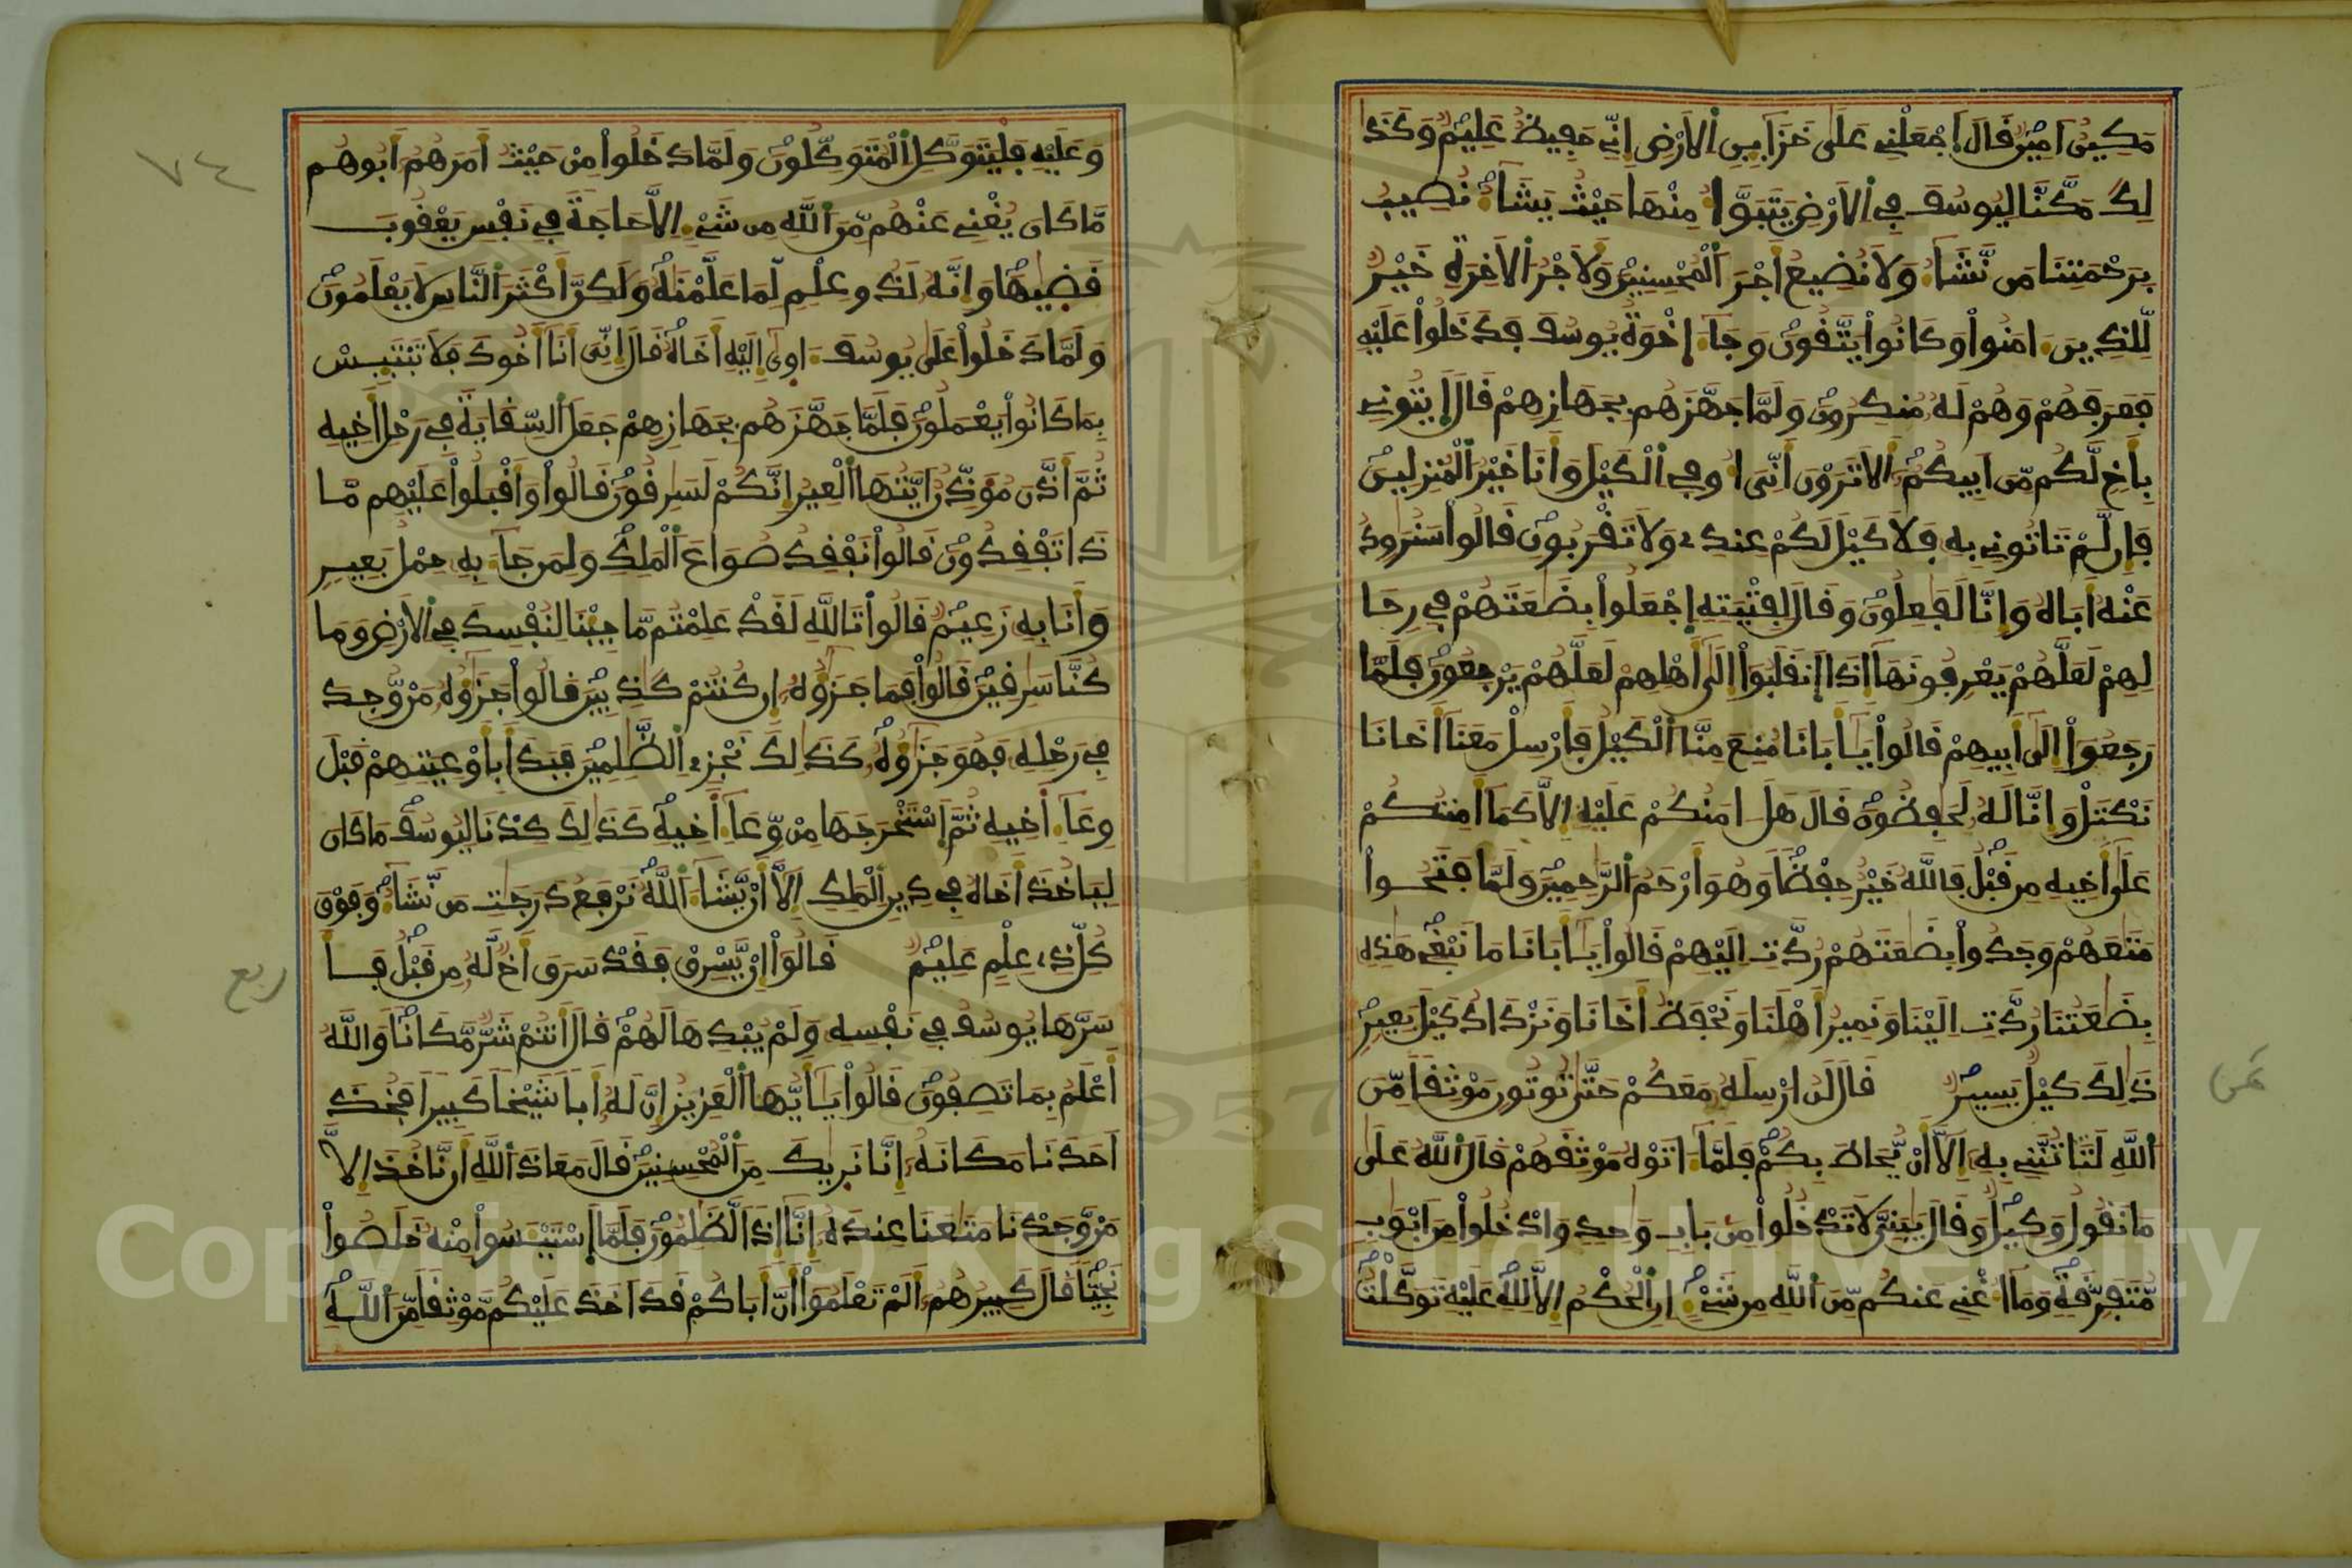 مَكِينٌ اَمِينٌ قَالَ اَجْعَلْنِي عَلَى خَزَايِنِ اِلَارْضِ إِنِّي حَفِيظٌ عَلِيمٌ وَكَذَا
لِكَ مَكَّنَّا لِيُوسُفَ فِي اِلَارْضِ يَتَبَوَّأُ مِنْهَا حَيْثُ يَشَآءُ نُصِيبُ
بِرَحْمَتِنَا مَن نَّشَآءُ وَلَا نُضِيعُ أَجْرَ اَلْمُحْسِنِينَ وَلَأَجْرُ اَلَاخِرَةِ خَيْرٌ
لِّلذِينَ ءَامَنُواْ وَكَانُواْ يَتَّقُونَ وَجَآءَ اِخْوَةُ يُوسُفَ فَدَخَلُواْ عَلَيْهِ
فَعَرَفَهُمْ وَهُمْ لَهُ مُنكِرُونَ وَلَمَّا جَهَّزَهُم بِجَهَازِهِمْ قَالَ اَيتُونِي
بِأَخٍ لَّكُم مِّنَ اَبِيكُمُ أَلَا تَرَوْنَ أَنِّيَ أُوفِي اِلْكَيْلَ وَأَنَا خَيْرُ اَلْمُنزِلِينَ
فَإِن لَّمْ تَاتُونِي بِهِ فَلَا كَيْلَ لَكُمْ عِندِي وَلَا تَقْرَبُونِ قَالُواْ سَنُرَاوِدُ
عَنْهُ أَبَاهُ وَإِنَّا لَفَاعِلُونَ وَقَالَ لِفِتْيَتِهِ اِجْعَلُواْ بِضَاعَتَهُمْ فِي رِحَا
لِهِمْ لَعَلَّهُمْ يَعْرِفُونَهَا إِذَا اَنقَلَبُواْ إِلَى أَهْلِهِمْ لَعَلَّهُمْ يَرْجِعُونَ فَلَمَّا
رَجَعُواْ إِلَى أَبِيهِمْ قَالُواْ يَـأَبَانَا مُنِعَ مِنَّا اَلْكَيْلُ فَأَرْسِلْ مَعَنَا أَخَانَا
نَكْتَلْ وَإِنَّا لَهُ لَحَافِظُونَ قَالَ هَلَ امَنُكُمْ عَلَيْهِ إِلَّا كَمَا أَمِنتُكُمْ
عَلَى أَخِيهِ مِن قَبْلُ فَاللَّهُ خَيْرٌ حِفْظاً وَهُوَ أَرْحَمُ اَلرَّاحِمِينَ وَلَمَّا فَتَحُواْ
مَتَاعَهُمْ وَجَدُواْ بِضَاعَتَهُمْ رُدَّتِ اِلَيْهِمْ قَالُواْ يَـأَبَانَا مَا نَبْغِي هَذِهِ
بِضَاعَتُنَا رُدَّتِ اِلَيْنَا وَنَمِيرُ أَهْلَنَا وَنَحْفَظُ أَخَانَا وَنَزْدَادُ كَيْلَ بَعِيرٍ
ذَالِكَ كَيْلٌ يَسِيرٌ قَالَ لَنُ ارْسِلَهُ مَعَكُمْ حَتَّى تُوتُونِ مَوْثِقاً مِّنَ
اَللَّهِ لَتَاتُنَّنِي بِهِ إِلَّا أَنْ يُّحَاطَ بِكُمْ فَلَمَّا ءَاتَوْهُ مَوْثِقَهُمْ قَالَ اَللَّهُ عَلَى
مَا نَقُولُ وَكِيلٌ وَقَالَ يَـبَنِيَّ لَا تَدْخُلُواْ مِن بَابٍ وَاحِدٍ وَادْخُلُواْ مِنَ اَبْوَابٍ
مُّتَفَرِّقَةٍ وَمَا أُغْنِي عَنكُم مِّنَ اَللَّهِ مِن شَيْءٍ إِنِ اِلْحُكْمُ إِلَّا لِلهِ عَلَيْهِ تَوَكَّلْتُ
ثمن
وَعَلَيْهِ فَلْيَتَوَكَّلِ اِلْمُتَوَكِّلُونَ وَلَمَّا دَخَلُواْ مِنْ حَيْثُ أَمَرَهُمْ أَبُوهُم
مَّا كَانَ يُغْنِي عَنْهُم مِّنَ اَللَّهِ مِن شَيْءٍ اِلَّا حَاجَةً فِي نَفْسِ يَعْقُوبَ
قَضَاهَا وَإِنَّهُ لَذُو عِلْمٍ لِّمَا عَلَّمْنَاهُ وَلَكِنَّ أَكْثَرَ اَلنَّاسِ لَا يَعْلَمُونَ
وَلَمَّا دَخَلُواْ عَلَى يُوسُفَ ءَاوِى إِلَيْهِ أَخَاهُ قَالَ إِنِّيَ أَنَا أَخُوكَ فَلَا تَبْتَيِسْ
بِمَا كَانُواْ يَعْمَلُونَ فَلَمَّا جَهَّزَهُم بِجَهَازِهِمْ جَعَلَ اَلسِّقَايَةَ فِي رَحْلِ أَخِيهِ
ثُمَّ أَذَّنَ مُوَذِّنٌ اَيَّتُهَا اَلْعِيرُ إِنَّكُمْ لَسَارِقُونَ قَالُواْ وَأَقْبَلُواْ عَلَيْهِم مَّا
ذَا تَفْقِدُونَ قَالُواْ نَفْقِدُ صُوَاعَ اَلْمَلِكِ وَلِمَن جَآءَ بِهِ حِمْلُ بَعِيرٍ
وَأَنَا بِهِ زَعِيمٌ قَالُواْ تَاللَّهِ لَقَدْ عَلِمْتُم مَّا جِيْنَا لِنُفْسِدَ فِي اِلَارْضِ وَمَا
كُنَّا سَارِقِينَ قَالُواْ فَمَا جَزَاؤُهُ إِن كُنتُمْ كَاذِبِينَ قَالُواْ جَزَاؤُهُ مَنْ وُّجِدَ
فِي رَحْلِهِ فَهُوَ جَزَاؤُهُ كَذَالِكَ نَجْزِي اِلظَّالِمِينَ فَبَدَأَ بِأَوْعِيَتِهِمْ قَبْلَ
وِعَآءِ اَخِيهِ ثُمَّ اَسْتَخْرَجَهَا مِنْ وِّعَآءِ اَخِيهِ كَذَالِكَ كِدْنَا لِيُوسُفَ مَا كَانَ
لِيَاخُذَ أَخَاهُ فِي دِينِ اِلْمَلِكِ إِلَّا أَنْ يَّشَآءَ اَللَّهُ نَرْفَعُ دَرَجَاتِ مَن نَّشَآءُ وَفَوْقَ
كُلِّ ذِي عِلْمٍ عَلِيمٌ قَالُواْ إِنْ يَّسْرِقْ فَقَدْ سَرَقَ أَخٌ لَّهُ مِن قَبْلُ فَأَ
ربع
سَرَّهَا يُوسُفُ فِي نَفْسِهِ وَلَمْ يُبْدِهَا لَهُمْ قَالَ أَنتُمْ شَرٌّ مَّكَاناً وَاللَّهُ
أَعْلَمُ بِمَا تَصِفُونَ قَالُواْ يَـأَيُّهَا اَلْعَزِيزُ إِنَّ لَهُ أَباً شَيْخاً كَبِيراً فَخُذَ
اَحَدَنَا مَكَانَهُ إِنَّا نَرَاكَ مِنَ اَلْمُحْسِنِينَ قَالَ مَعَاذَ اَللَّهِ أَن نَّاخُذَ إِلَّا
مَنْ وَّجَدْنَا مَتَاعَنَا عِندَهُ إِنَّا إِذاً لَّظَالِمُونَ فَلَمَّا اَسْتَيْـَسُواْ مِنْهُ خَلَصُواْ
نَجِيّاً قَالَ كَبِيرُهُمُ أَلَمْ تَعْلَمُواْ أَنَّ أَبَاكُمْ قَدَ اَخَذَ عَلَيْكُم مَّوْثِقاً مِّنَ اَللَّهِ
٧٤
Copyright © King Saud University
1957